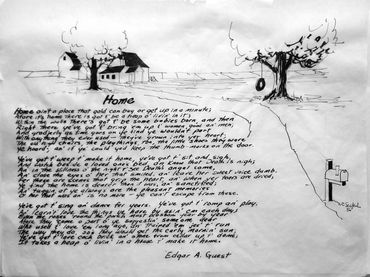 Home
Home ain't a place that gold can buy or get up in a minute;
Afore it's home there's got t' be a heap o' livin' in it;
Within the walls there's got t' be some babies born, and then
Right there ye've got t' bring 'em up t' women good, an' men;
And gradjerly as time goes on, ye find ye wouldn't part
With anything they ever used they've grown into yer heart;
The old high chairs, the playthings, too, the little shoes they wore
Ye hoard; an' if ye could ye'd keep the thumb marks on the door.
Ye've got t' weep t' make it home, ye've got t' sit an' sigh
An' watch beside a loved one's bed, an' know that Death is nigh;
An' in the stillness o' the night t' see Death's angel come,
An' close the eyes o' her that smiled, an' leave her sweet voice dumb.
Fer these are scenes that grip the heart, an' when yer tears are dried,
Ye find the home is dearer than it was, an' sanctified;
An' tuggin' at ye always are the pleasant memories
O' her that was an' is no more ye can't escape from these.
Ye've got t' sing an' dance fer years, ye've got t' romp an' play,
An' learn t' love the things ye have by usin' 'em each day;
Even the roses 'round the porch must blossom year by year
Afore they 'come a part o' ye, suggestin' someone dear
Who used t' love 'em long ago, an' trained 'em jes' t' run
The way they do, so's they would get the early mornin' sun;
Ye've got t' love each brick an' stone from cellar up t' dome;
It takes a heap o' livin' in a house t' make it home.
Edgar A. Guest